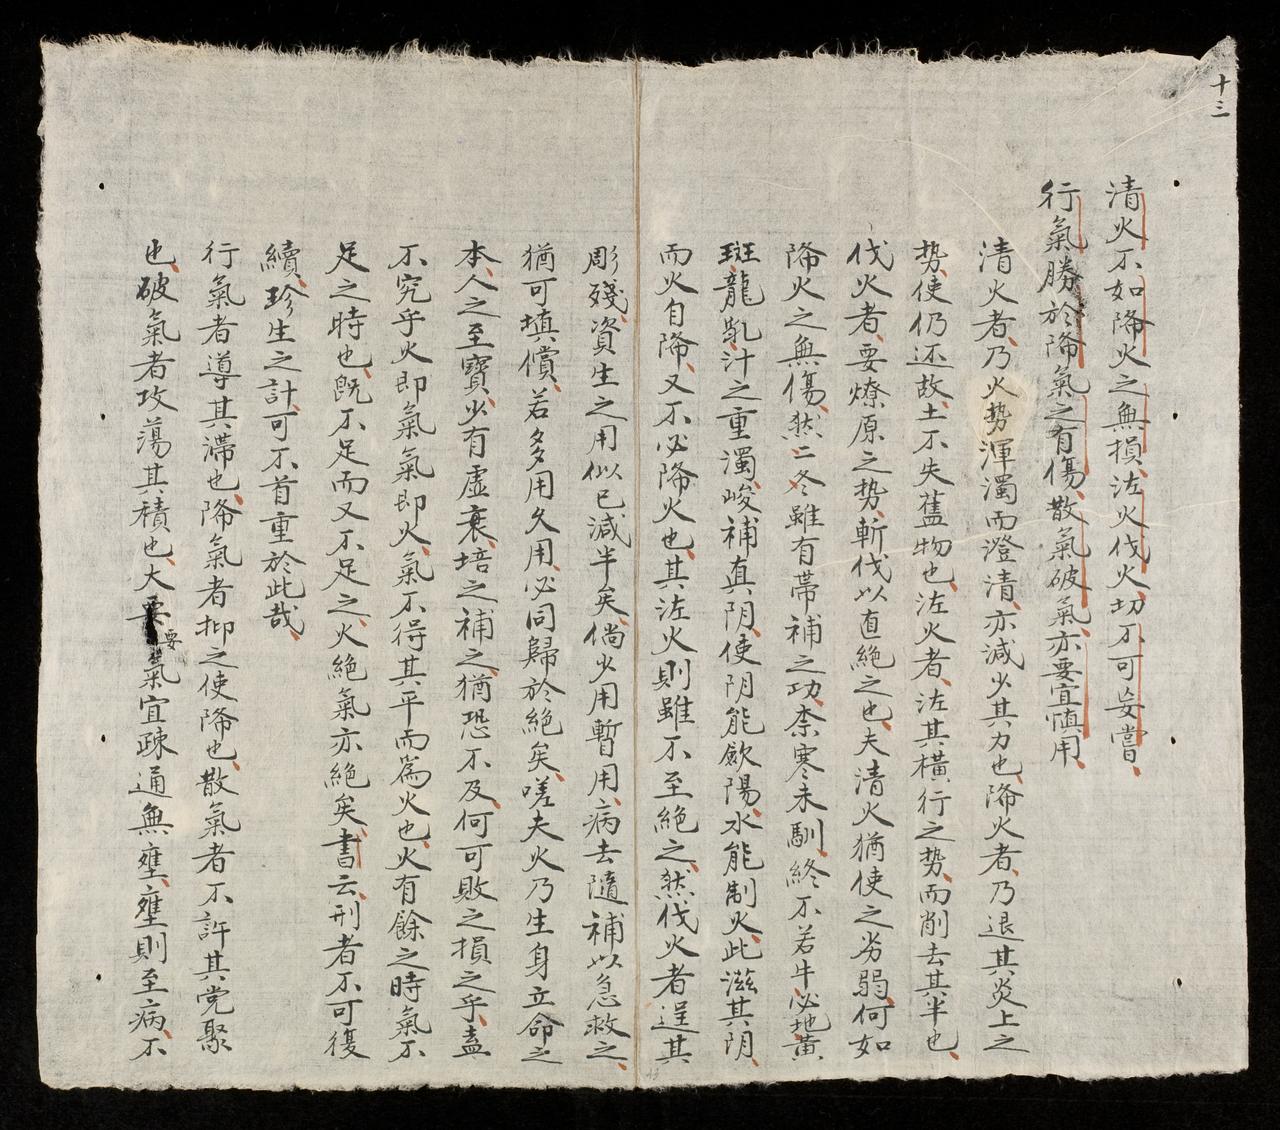 十三
清火不如降火之無損、泻火伐火切不可妄嘗、
行氣勝於降氣之有傷、散氣破氣亦要宜慎用、
清火者、乃火势渾濁而澄清、亦減少其力也、降火者、乃退其炎上之
势、使仍还故土不失舊物也、泻火者、泻其橫行之势、而削去其半也、
伐火者、要燎原之势、斬伐以直絶之也、夫清火猶使之劣弱、何如
降火之無傷、然二冬雖有帶補之功、柰寒未馴、終不若牛必地黄
斑龍乳汁之重濁、峻補真阴、使阴能飲陽、水能制火、此滋其阴、
而火自降、又不必降火也、其泻火則雖不至絶之、然伐火者逞其
彫殘、資生之用似已减半矣、倘火用暫用、病去隨補以急救之、
猶可填償、若多用久用、必同歸於絶矣、嗟夫火乃生身立命之
本、人之至寶、少有虛衰、培之補之、猶恐不及、何可敗之損之乎、盖
不究乎火即氣氣即火、氣不得其平而爲火也、火有餘之時氣不
足之時也、既不足而又不足之、火絶氣亦絶矣、書云、刑者不可復
續、珍生之計、可不首重於此哉、
行氣者導其滯也、降氣者抑之使降也、散氣者不許其党聚
也、破氣者攻蕩其積也、大要氣宜疎通無壅、壅則至病、不